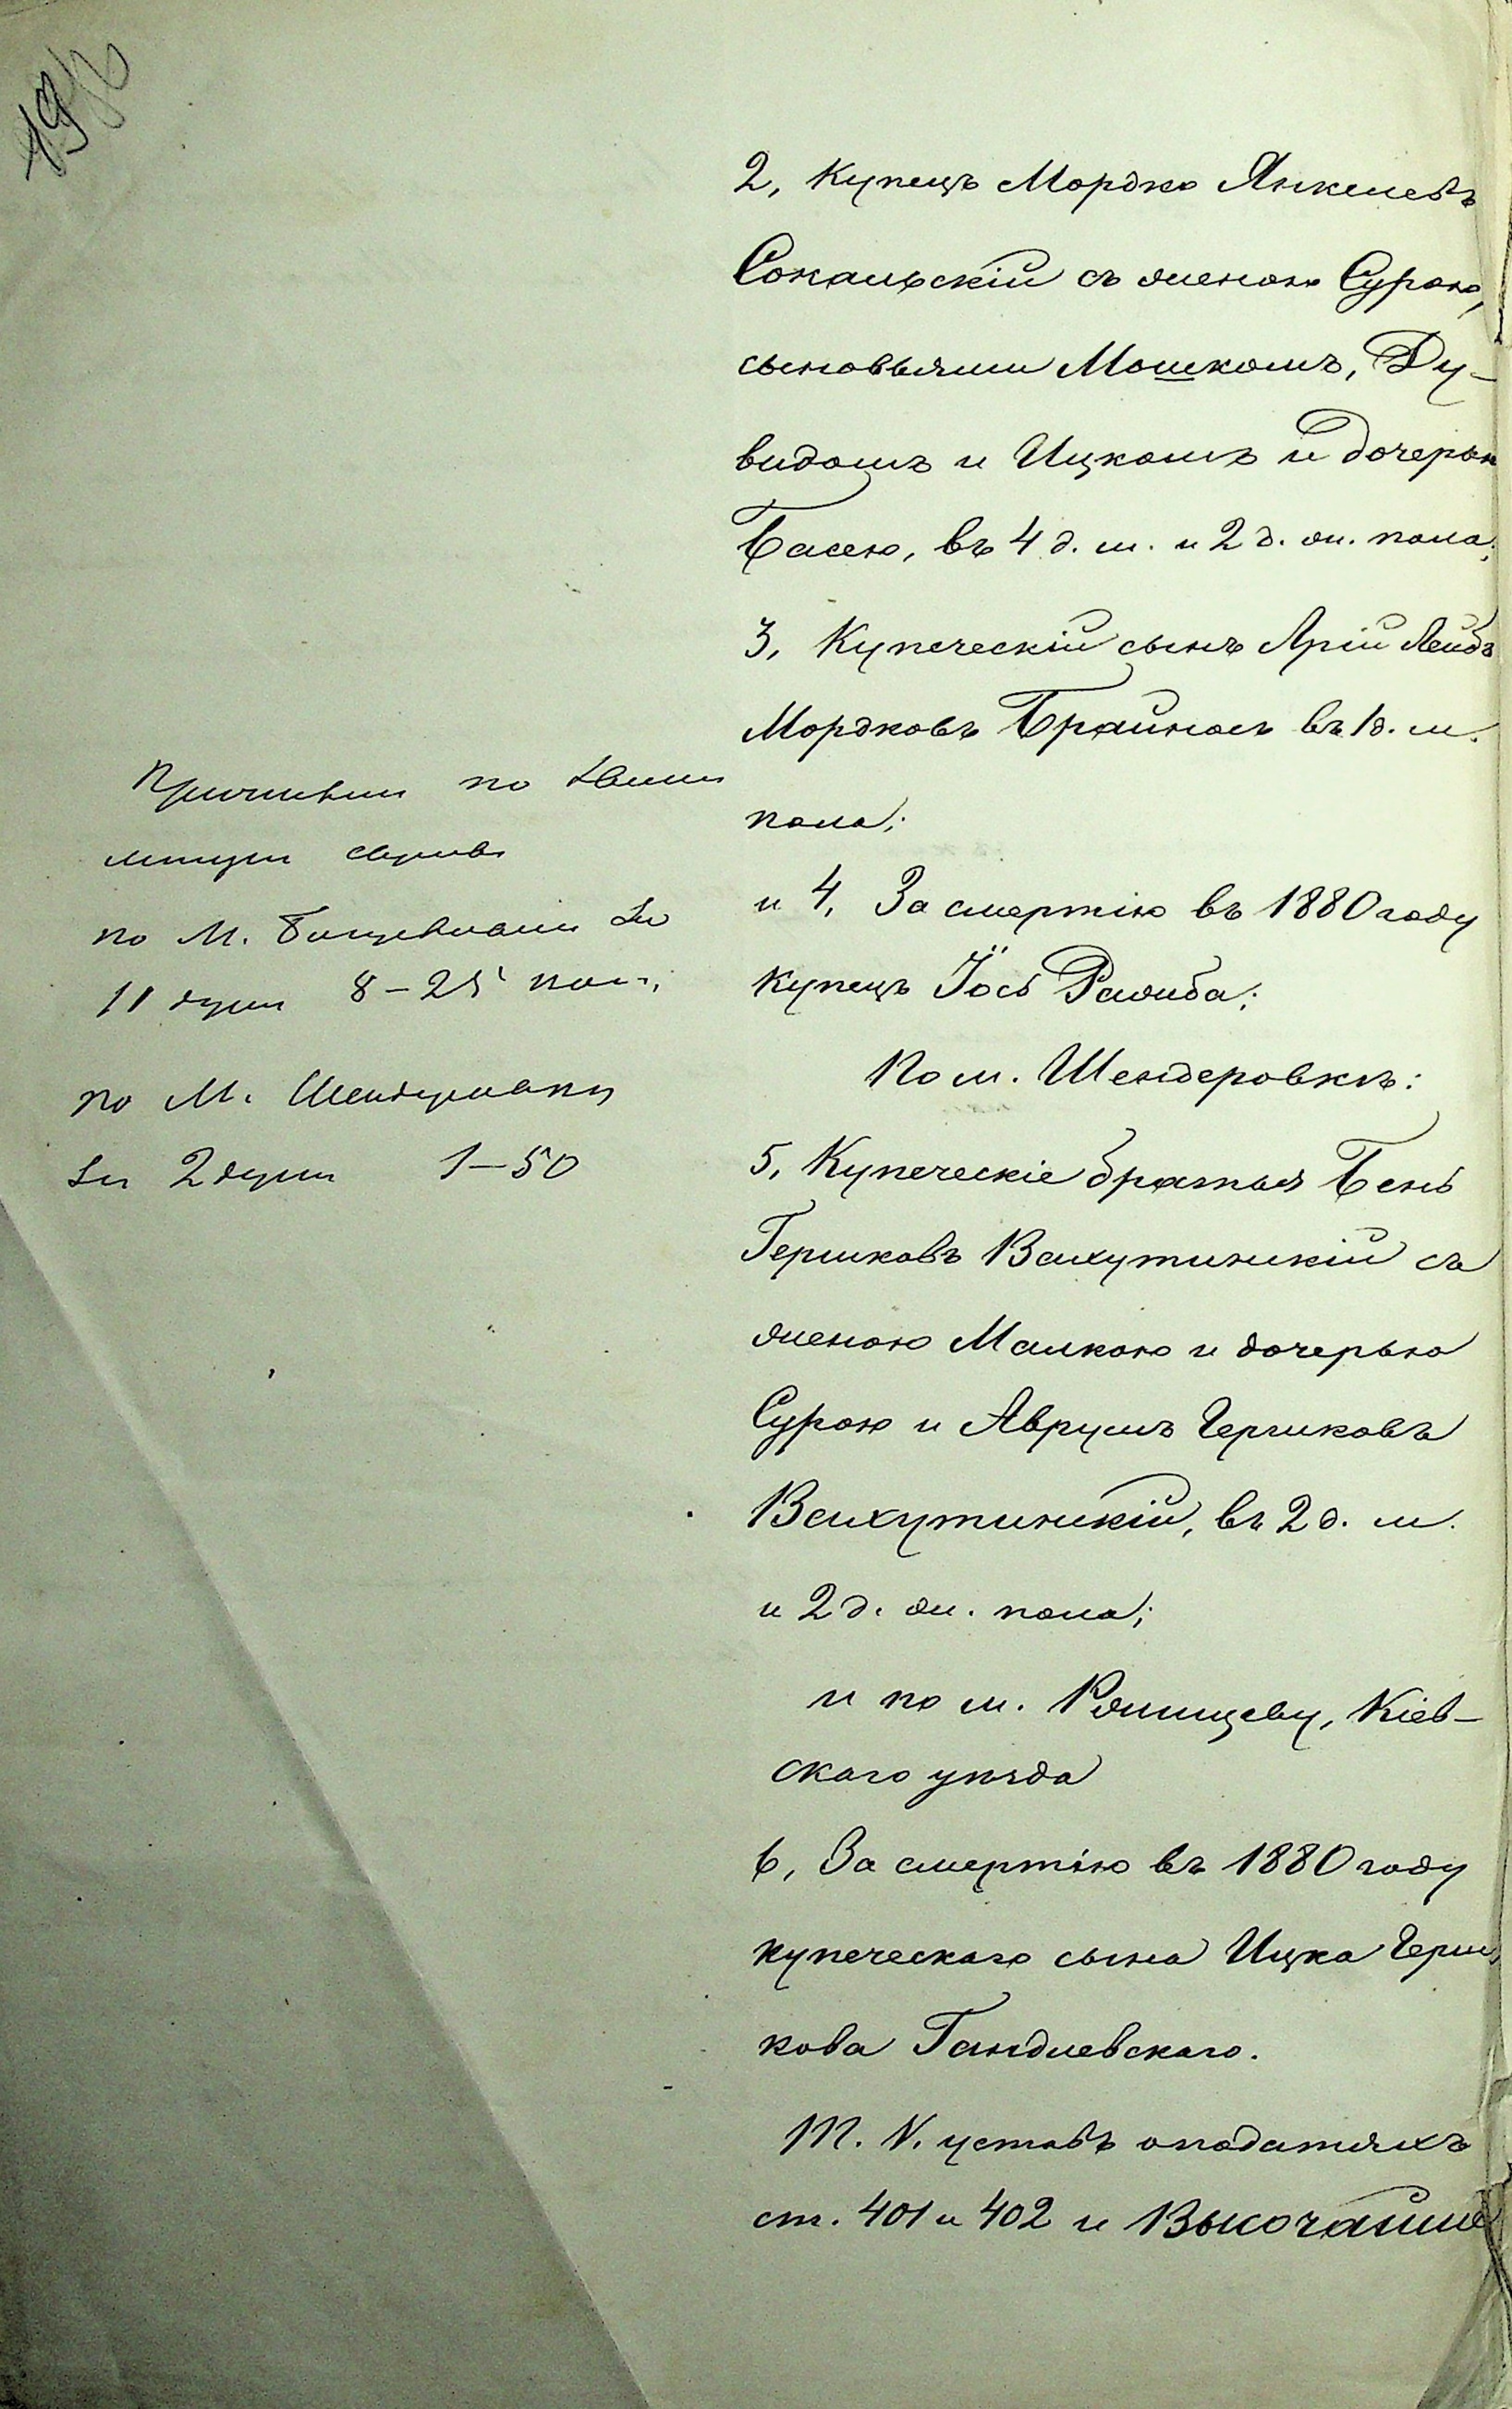 2, Купецъ Мордко Янкелевъ
Сокальскій съ женою Сурою,
сыновьями Мошкомъ, Ду-
видомъ и Ицкомъ и дочерью
Басею, въ 4 д. м. и 2 д. ж. пола;
3, Купеческій сынъ Арій Лейбъ
Мордковъ въ 1 д. м.
пола;
и 4, За смертію въ 1880 году
купецъ Іось
По м. Шендеровкѣ:
5, Купеческіе братья Бень
Гершковъ Вахутинскій съ
женою Малкою и дочерью
Сурою и Аврумъ Гершковъ
Вахутинскій, въ 2 д. м.
и 2 д. ж. пола;
и по м. Ржищеву, Кіев-
скаго уѣзда
6, За смертію въ 1880 году
купеческаго сына Ицка Герш-
кова
Т. V. уставъ о податяхъ
ст. 401 и 402 и Высочайше
по
по М.
11 души 8-25 коп.;
по М. Шендеровки
за 2 души 1-50